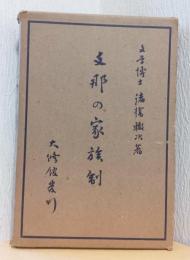 文学博士 諸橋轍次著
支那の家族制
大修館発刊